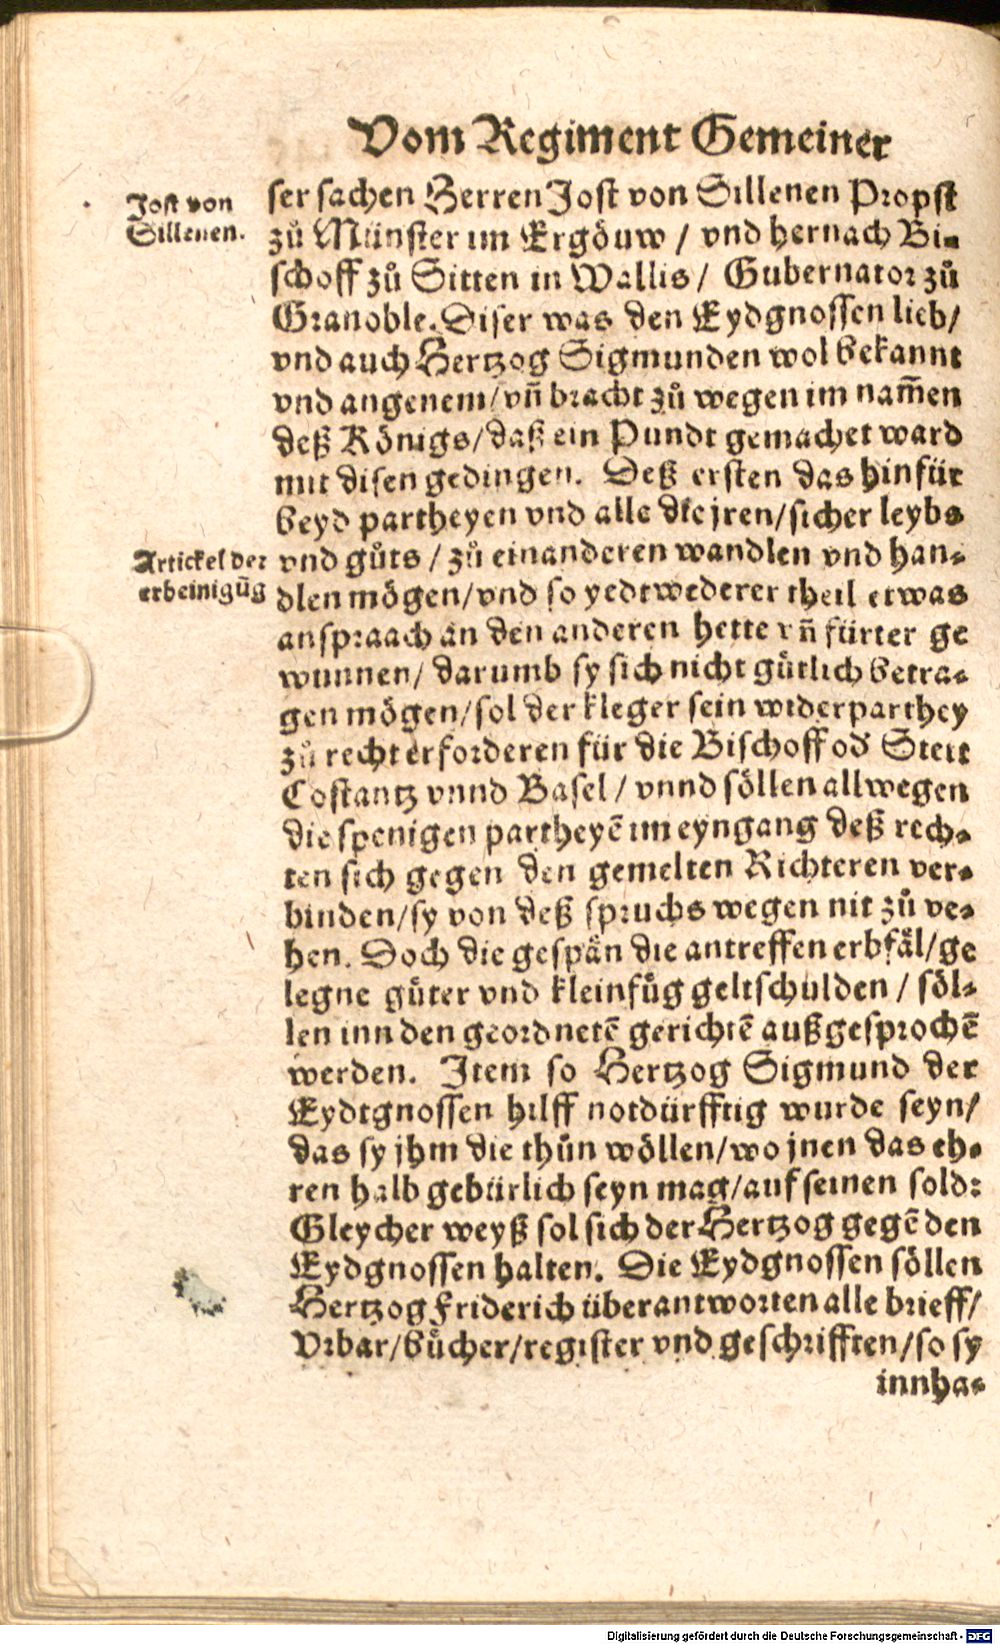 Vom Regiment Gemeiner
Jost von
Sillenen.
ser sachen Herren Jost von Sillenen Propst
zů Münster im Ergöuw / vnd hernach Bi-
schoff zů Sitten in Wallis / Gubernator zů
Granoble. Diser was den Eydgnossen lieb /
vnd auch Hertzog Sigmunden wol bekannt
vnd angenem / vn̄ bracht zů wegen im nam̄en
deß Königs / daß ein Pundt gemachet ward
mit disen gedingen. Deß ersten das hinfür
beyd partheyen vnd alle die jren / sicher leybs
Artickel der
erbeinigūg
vnd gůts / zů einanderen wandlen vnd han-
dlen mögen / vnd so yedtwederer theil etwas
anspraach an den anderen hette vn̄ fürter ge
wunnen / darumb sy sich nicht gůtlich betra-
gen mögen / sol der kleger sein widerparthey
zů recht erforderen für die Bischoff od Stett
Costantz vnnd Basel / vnnd söllen allwegen
die spenigen partheyē im eyngang deß rech-
ten sich gegen den gemelten Richteren ver-
binden / sy von deß spruchs wegen nit zů ve-
hen. Doch die gespån die antreffen erbfål / ge
legne gůter vnd kleinfůg geltschulden / söl-
len inn den geordnetē gerichtē außgesprochē
werden. Item so Hertzog Sigmund der
Eydtgnossen hilff notdürfftig wurde seyn /
das sy jhm die thůn wöllen / wo jnen das eh-
ren halb gebürlich seyn mag / auf seinen sold:
Gleycher weyß sol sich der Hertzog gegē den
Eydgnossen halten. Die Eydgnossen söllen
Hertzog Friderich überantworten alle brieff /
Vrbar / bůcher / register vnd geschrifften / so sy
innha-
Digitalisierung gefördert durch die Deutsche Forschungsgemeinschaft - DFG